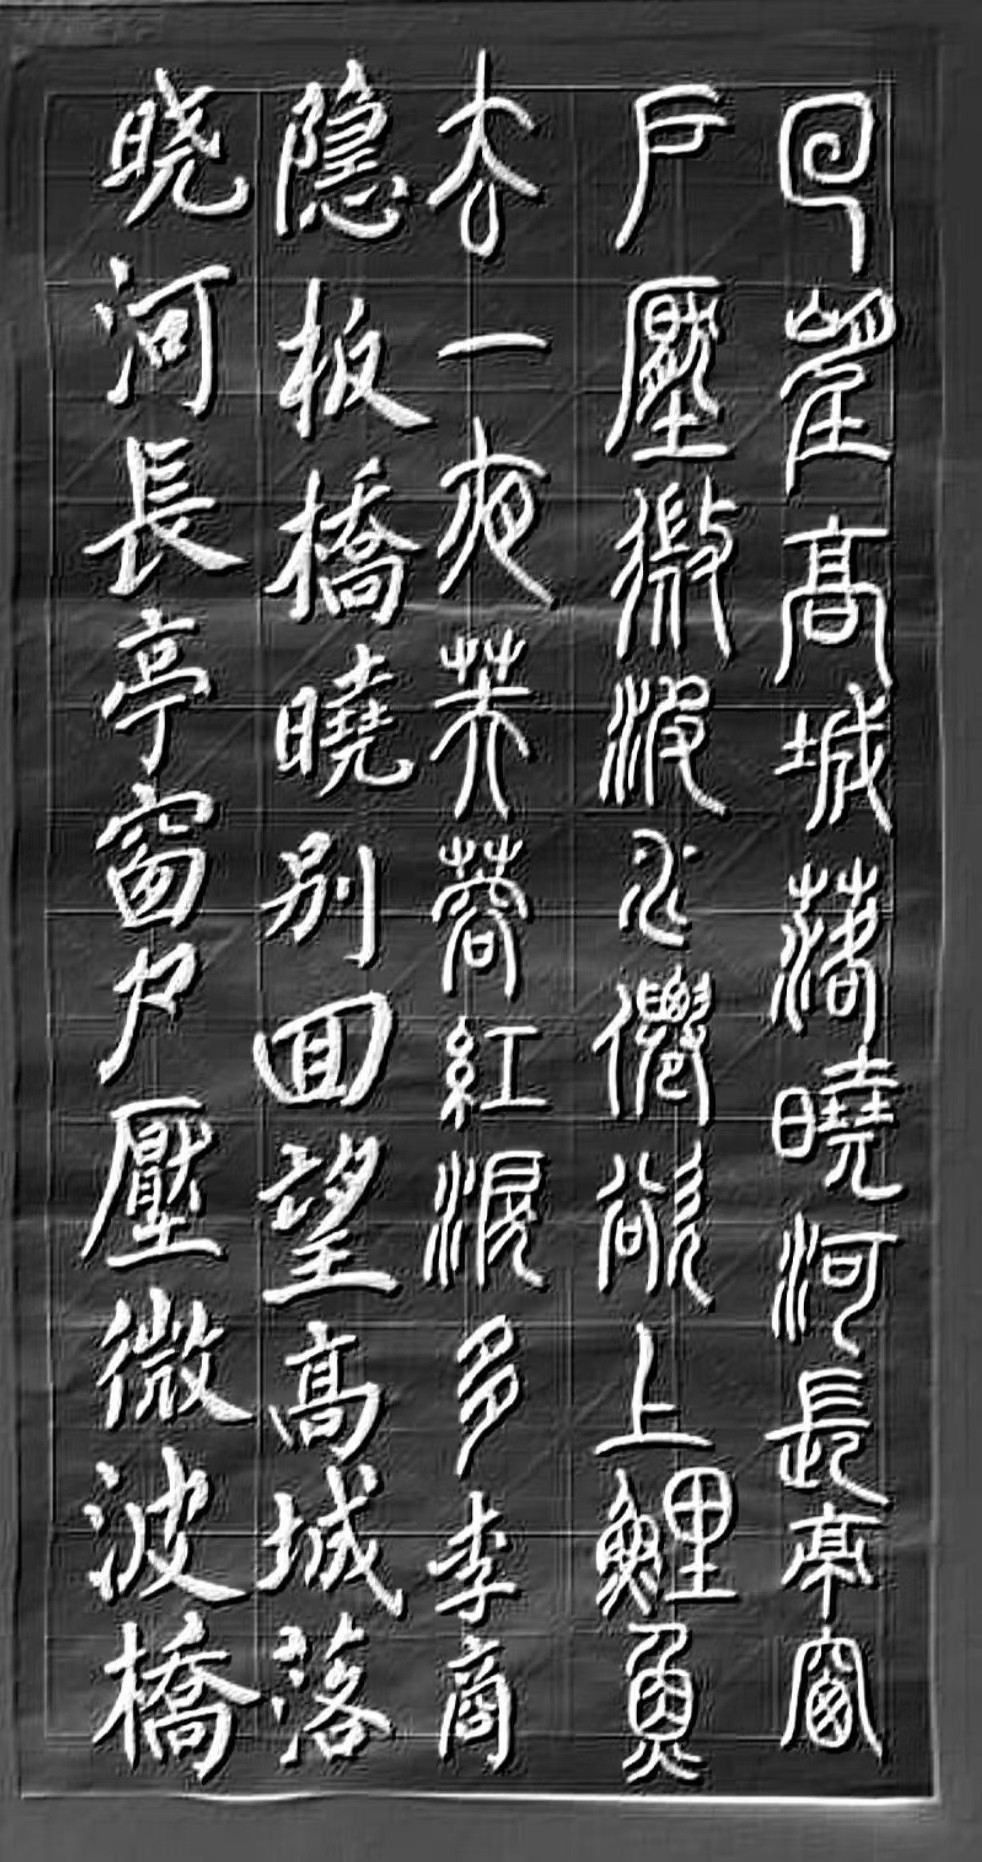 回望高城落曉河長亭窗
戶壓微波水僊欲上鯉魚
去一夜芙蓉紅淚多李商
隱板橋曉別回望高城落
晓河長亭窗戶壓微波橋